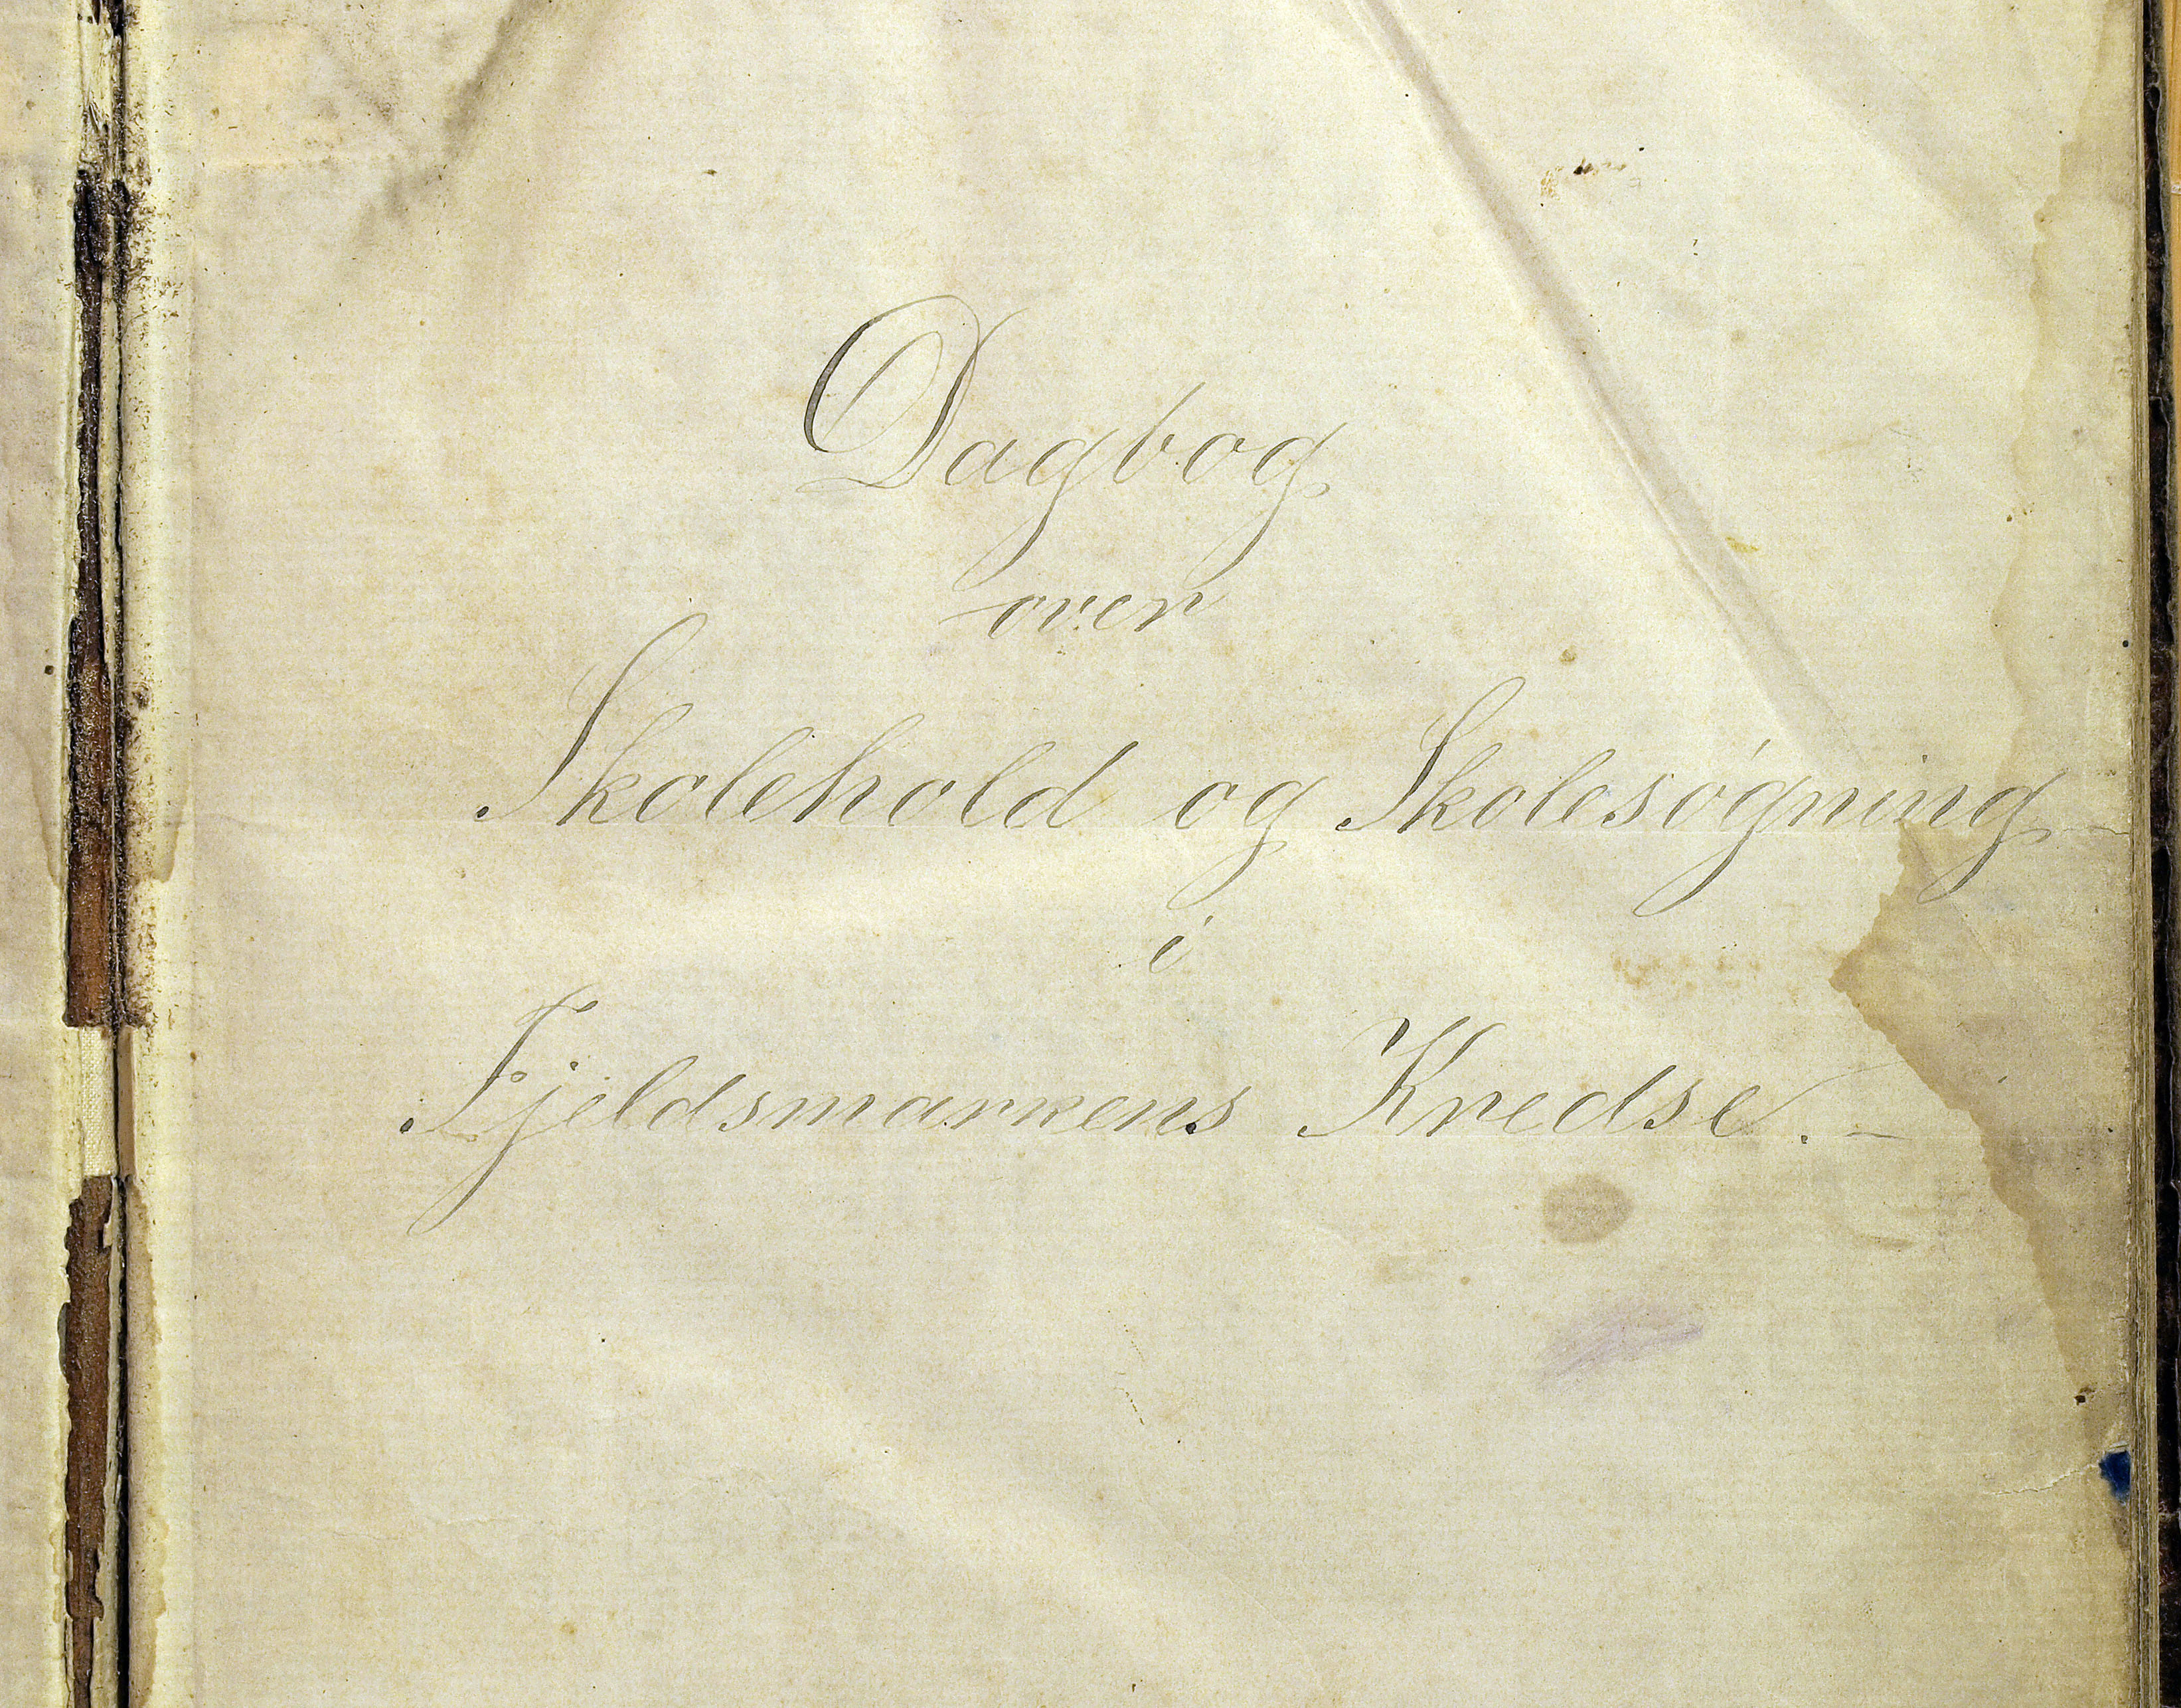 Dagbog
over
Skolehold og Skolesøgning
i
Fjeldsmarkens Kredse. –